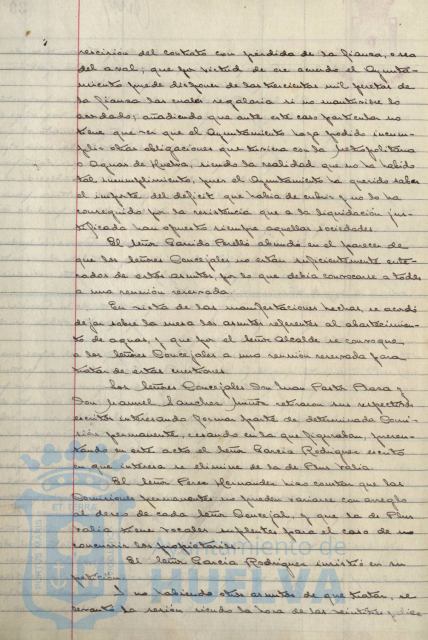 rescisión del contrato con pérdida de la fianza, o sea
del aval; que por virtud de ese acuerdo el Ayunta-
miento puede disponer de las trescientas mil pesetas de
la fianza las cuales regalaría si no mantuviese lo
acordado; añadiendo que ante este caso particular no
tiene que ver que el Ayuntamiento haya podido incum-
plir otras obligaciones que tuviera con la Metropolitana
o Aguas de Huelva, siendo la realidad que no ha habido
tal incumplimiento, pues el Ayuntamiento ha querido saber
el importe del déficit que había de cubrir y no lo ha
conseguido por la resistencia que a la liquidación jus-
tificada han opuesto siempre aquellas sociedades.
El Señor Garrido Perelló abundó en el parecer de
que los Señores Concejales no están suficientemente ente-
rados de estos asuntos, por lo que debía convocarse a todos
a una reunión reservada.
En vista de las manifestaciones hechas, se acordó
dejar sobre la mesa los asuntos referentes al abastecimien-
to de aguas, y que por el Señor Alcalde se convoque
a los Señores Concejales a una reunión reservada para
tratar de estas cuestiones.
Los Señores Concejales Don Juan Pastor y
Don Manuel Sánchez retiraron sus respectivos
escritos interesando formar parte de determinada Comi-
sión permanente, cesando en la que figuraban, presen-
tando en este acto el Señor García Rodríguez escrito
en que interesa se elimine de la de Plus Valía.
El Señor Pérez Hernández hizo constar que las
Comisiones permanentes no pueden variarse con arreglo
al deseo de cada Señor Concejal, y que la de Plus
Valía tiene vocales suplentes para el caso de no
concurrir los propietarios.
El Señor García Rodríguez insistió en su
petición.
Y no habiendo otros asuntos de que tratar, se
levantó la sesión siendo la hora de las veintitrés y diez
Ayuntamiento de
HUELVA